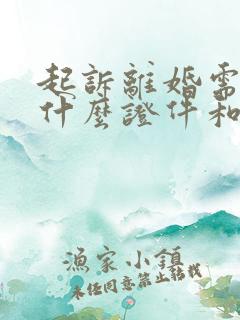 起訴離婚需
什麼證件和
漁家小鎮
未经同意禁止转载